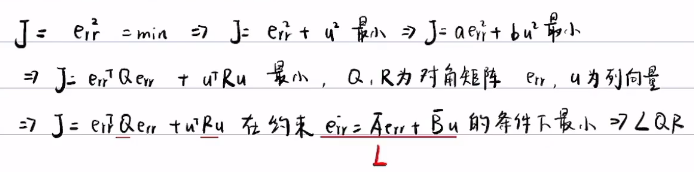 J = err² = min ⇒ J = err² + u² 最小 ⇒ J = a err² + b u² 最小
⇒ J = errᵀQerr + uᵀRu 最小, Q, R为对角矩阵 err, u 为列向量
⇒ J = errᵀQerr + uᵀRu 在约束 ėrr = Āerr + B̄u 的条件下最小 ⇒ LQR
L